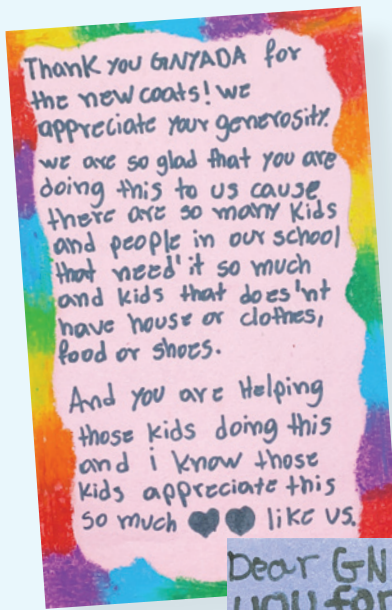 Thank you GNYADA for
the new coats! we
appreciate your generosity.
we are so glad that you are
doing this to us cause
there are so many kids
and people in our school
that need' it so much
and kids that does'nt
have house or clothes,
food or shoes.
And you are Helping
those kids doing this
and i know those
kids appreciate this
so much ♥♥ like us.
Dear GN